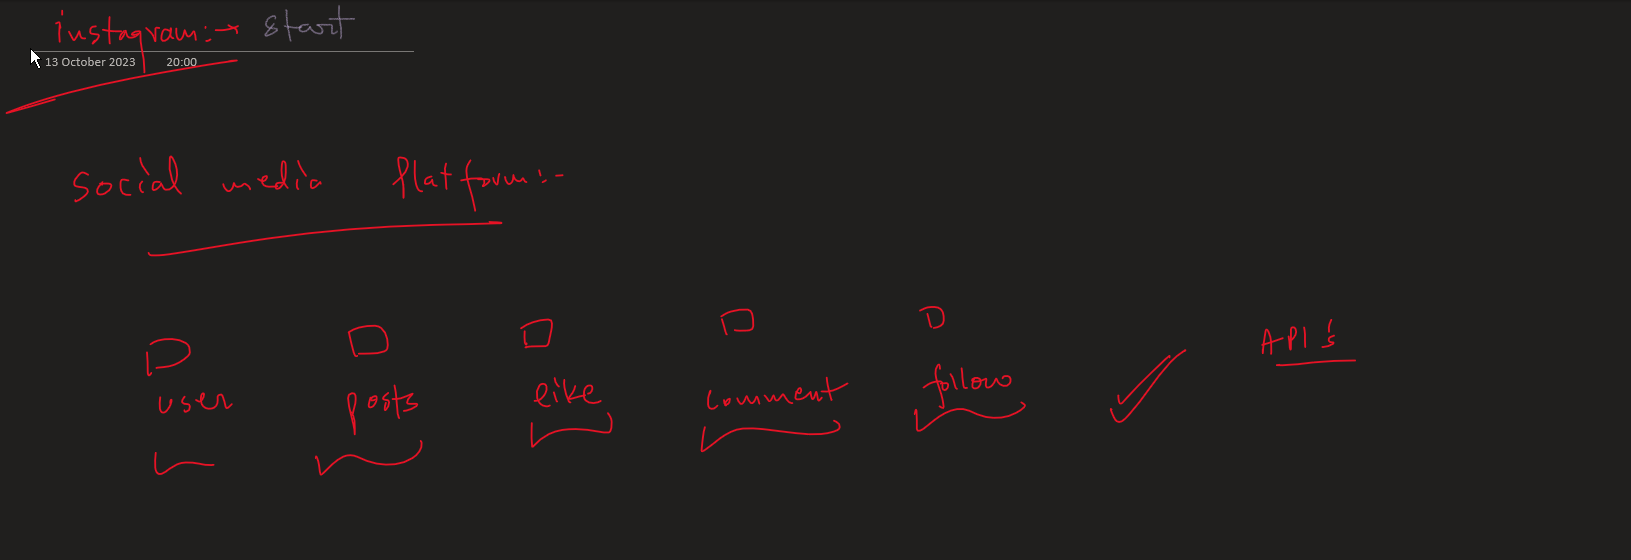 instagram:→ start
13 October 2023 20:00
social media Platform:-
user posts like comment follow
API's